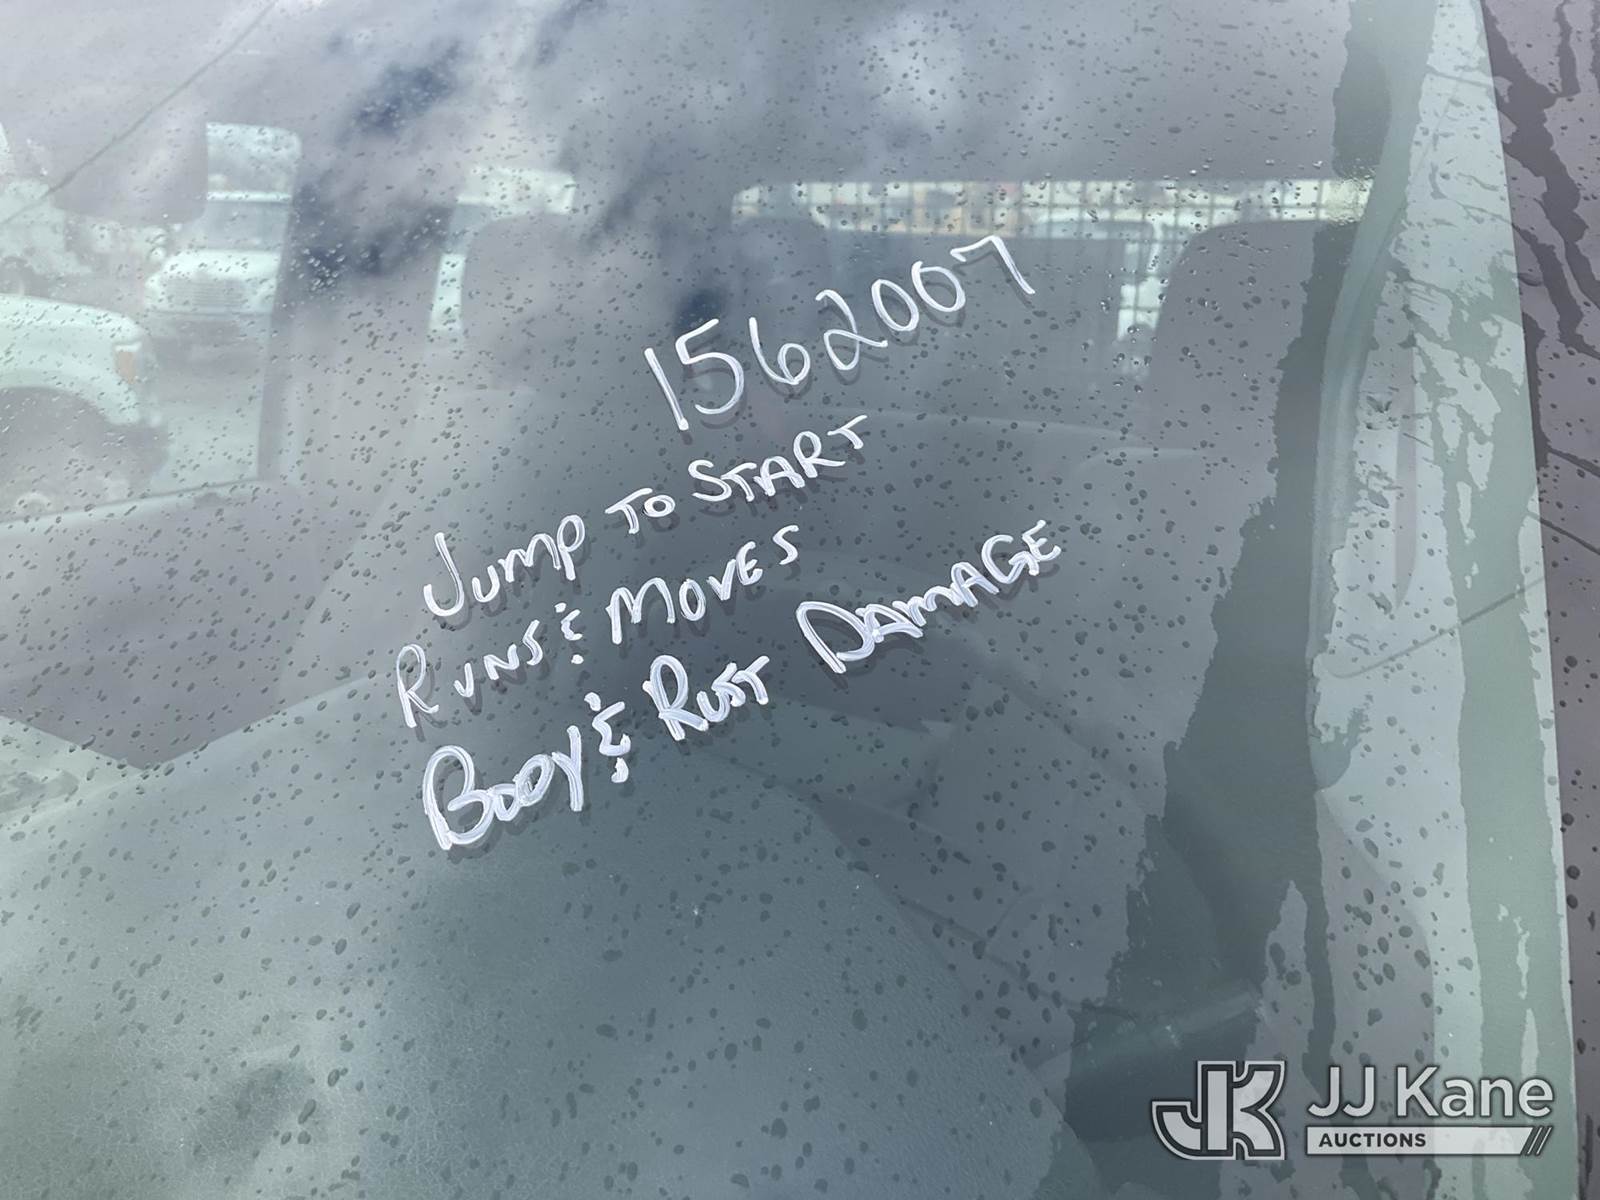 1562007
JUMP TO START
RUNS & MOVES
BODY & RUST DAMAGE
JK JJ Kane
AUCTIONS